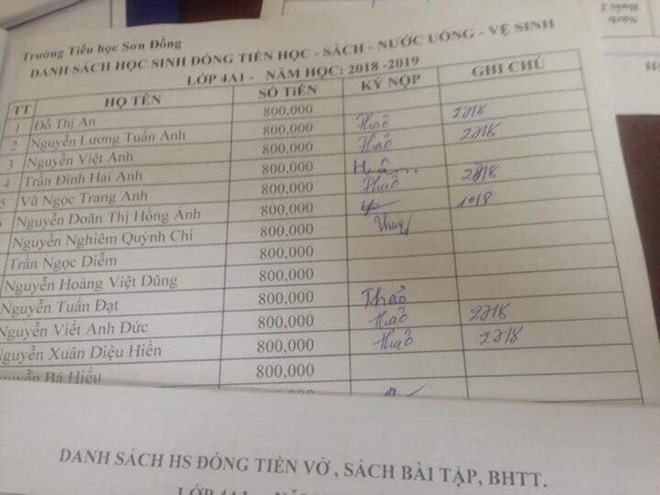 Trường Tiểu học Sơn Đồng
DANH SÁCH HỌC SINH ĐÓNG TIỀN HỌC - SÁCH - NƯỚC UỐNG - VỆ SINH
LỚP 4A1 - NĂM HỌC: 2018 -2019
TT HỌ TÊN SỐ TIỀN KÝ NỘP GHI CHÚ
1 Đỗ Thị An 800,000 Thảo 28/8
2 Nguyễn Lương Tuấn Anh 800,000 Thảo 28/8
3 Nguyễn Việt Anh 800,000
4 Trần Đình Hải Anh 800,000 Thảo 28/8
5 Vũ Ngọc Trang Anh 800,000
Nguyễn Doãn Thị Hồng Anh 800,000 Thuỷ
Nguyễn Nghiêm Quỳnh Chi 800,000
Trần Ngọc Diễm 800,000
Nguyễn Hoàng Việt Dũng 800,000 Thảo
Nguyễn Tuấn Đạt 800,000 Thảo 28/8
Nguyễn Viết Anh Đức 800,000 Thảo 28/8
Nguyễn Xuân Diệu Hiền 800,000
Nguyễn Bá Hiếu
DANH SÁCH HS ĐÓNG TIỀN VỞ , SÁCH BÀI TẬP, BHTT.
LỚP 4A1 -